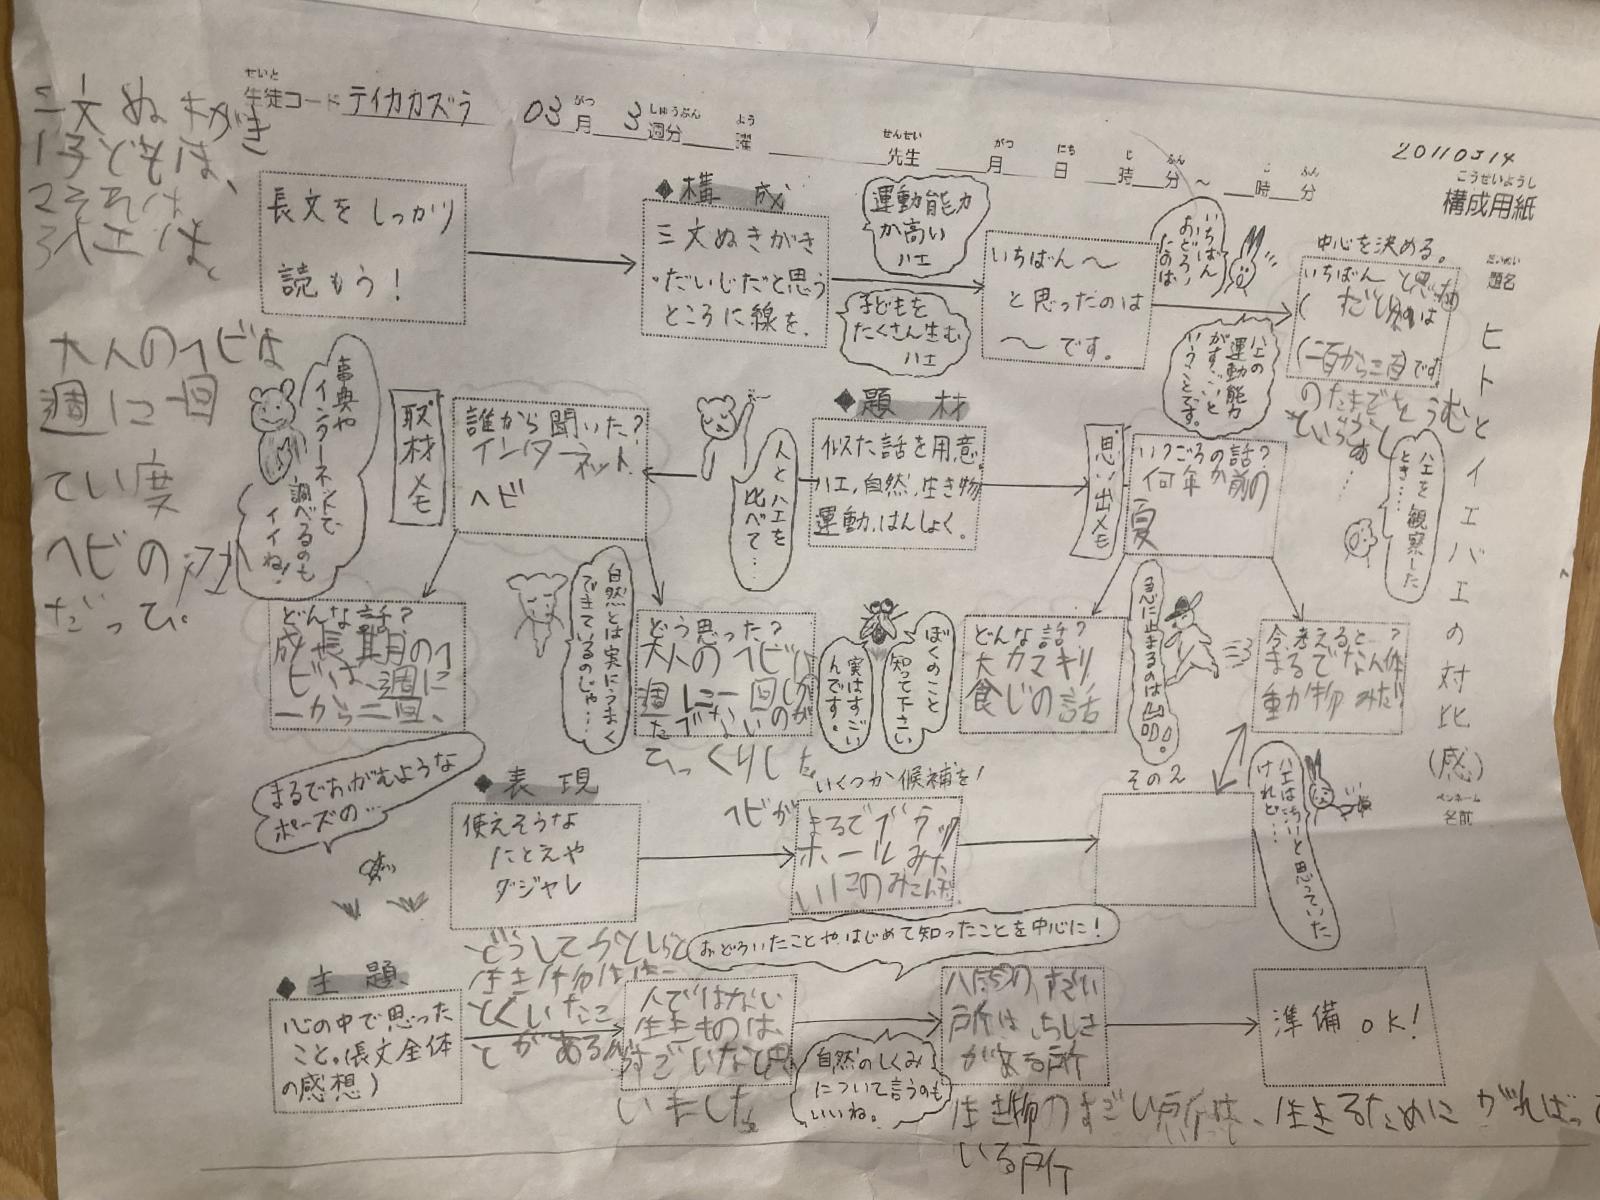 せいと
生徒コード テイカカズラ
03月 がつ
3週分 しゅうぶん
曜 よう
先生 せんせい
月 がつ 日 にち 時 じ 分 ふん 〜 時 じ 分 ふん
20110314
こうせいようし
構成用紙
三文ぬきがき
1子どもは、
2それは、
3ハエは、
長文をしっかり
読もう!
◆構成
三文ぬきがき
・だいじだと思う
ところに線を。
運動能力
が高い
ハエ
子どもを
たくさん生む
ハエ
いちばん〜
と思ったのは
〜です。
いちばん
おどろい
たのは、
ハエの
運動能力
がすごいと
いうことです。
中心を決める。
いちばん
(
(二百から三百です
のたまごをうむ
だいめい
題名
ヒトとイエバエの対比
(感)
ペンネーム
名前
大人のヘビは
週に一回
てい度
ヘビの
だって。
事典や
インターネットで
調べるのも
イイね!
取材メモ
誰から聞いた?
インターネット
ヘビ
人とハエを
比べて…
◆題材
似た話を用意。
ハエ,自然,生き物
運動,はんしょく。
思い出メモ
いつごろの話?
何年か前の
夏
ハエを観察した
とき…
どんな話?
成長期のヘ
ビは、週に
一から二回、
自然とは実にうまく
できているのじゃ…
どう思った?
大人のヘビは
週に一回しか
たべないのが
びっくりした
ぼくのこと
知って下さい
実はすごい
んです。
どんな話?
大カマキリ
食じの話
急に止まるのは凶。
今考えると…?
まるで
動物みたい
まるでおがむような
ポーズの…
◆表現
使えそうな
たとえや
ダジャレ
いくつか候補を!
ヘビが
まるでブラック
ホールみた
いにのみこんだ。
その2
ハエはきらいと思っていた
けれど…
おどろいたことや、はじめて知ったことを中心に!
どうして
生き物は
とくいなこ
とがあるん
◆主題
心の中で思った
こと。(長文全体
の感想)
人ではない
生きものは、
すごいなと思
いました。
自然のしくみ
について言うのも
いいね。
すごい
所は、ちしき
がある所
生き物のすごい所は、生きるためにがんばって
いる所
準備OK!